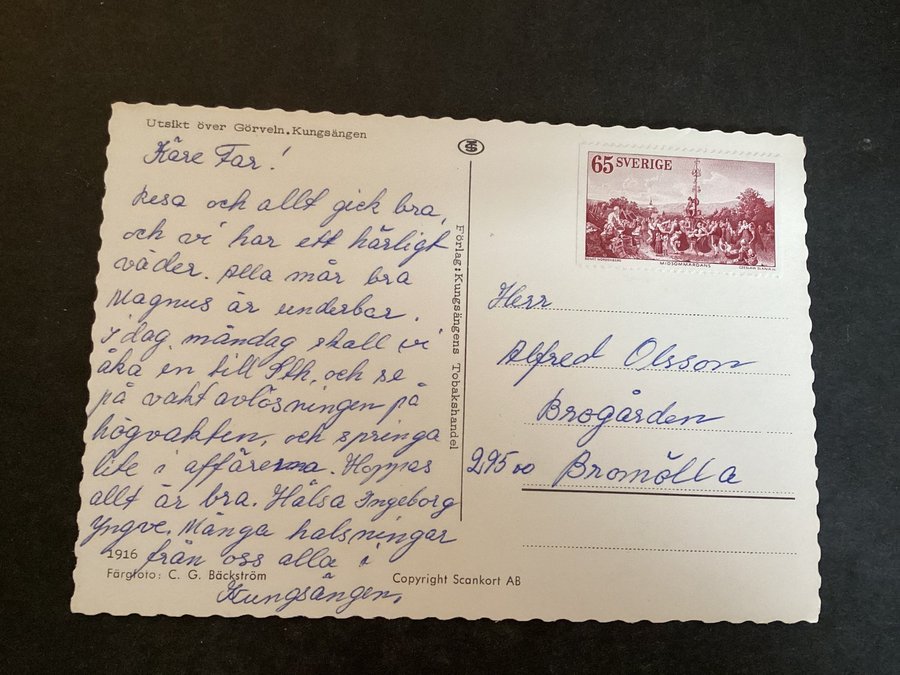 Utsikt över Görveln.Kungsängen
Käre Far!
Resa och allt gick bra,
och vi har ett härligt
väder. Alla mår bra
Magnus är underbar.
I dag, måndag skall vi
åka en till Sthk, och se
på vakt avlösningen på
högvakten, och springa
lite i affärerna. Hoppas
allt är bra. Hälsa Ingeborg
Yngve. Många halsningar
från oss alla i
Kungsängen.
1916
Färgfoto: C. G. Bäckström
Copyright Scankort AB
Förlag:Kungsängens Tobakshandel
65 SVERIGE
MIDSOMMARDANS
CZESLAW SLANIA SC
Herr
Alfred Olsson
Brogården
295 00 Bromölla